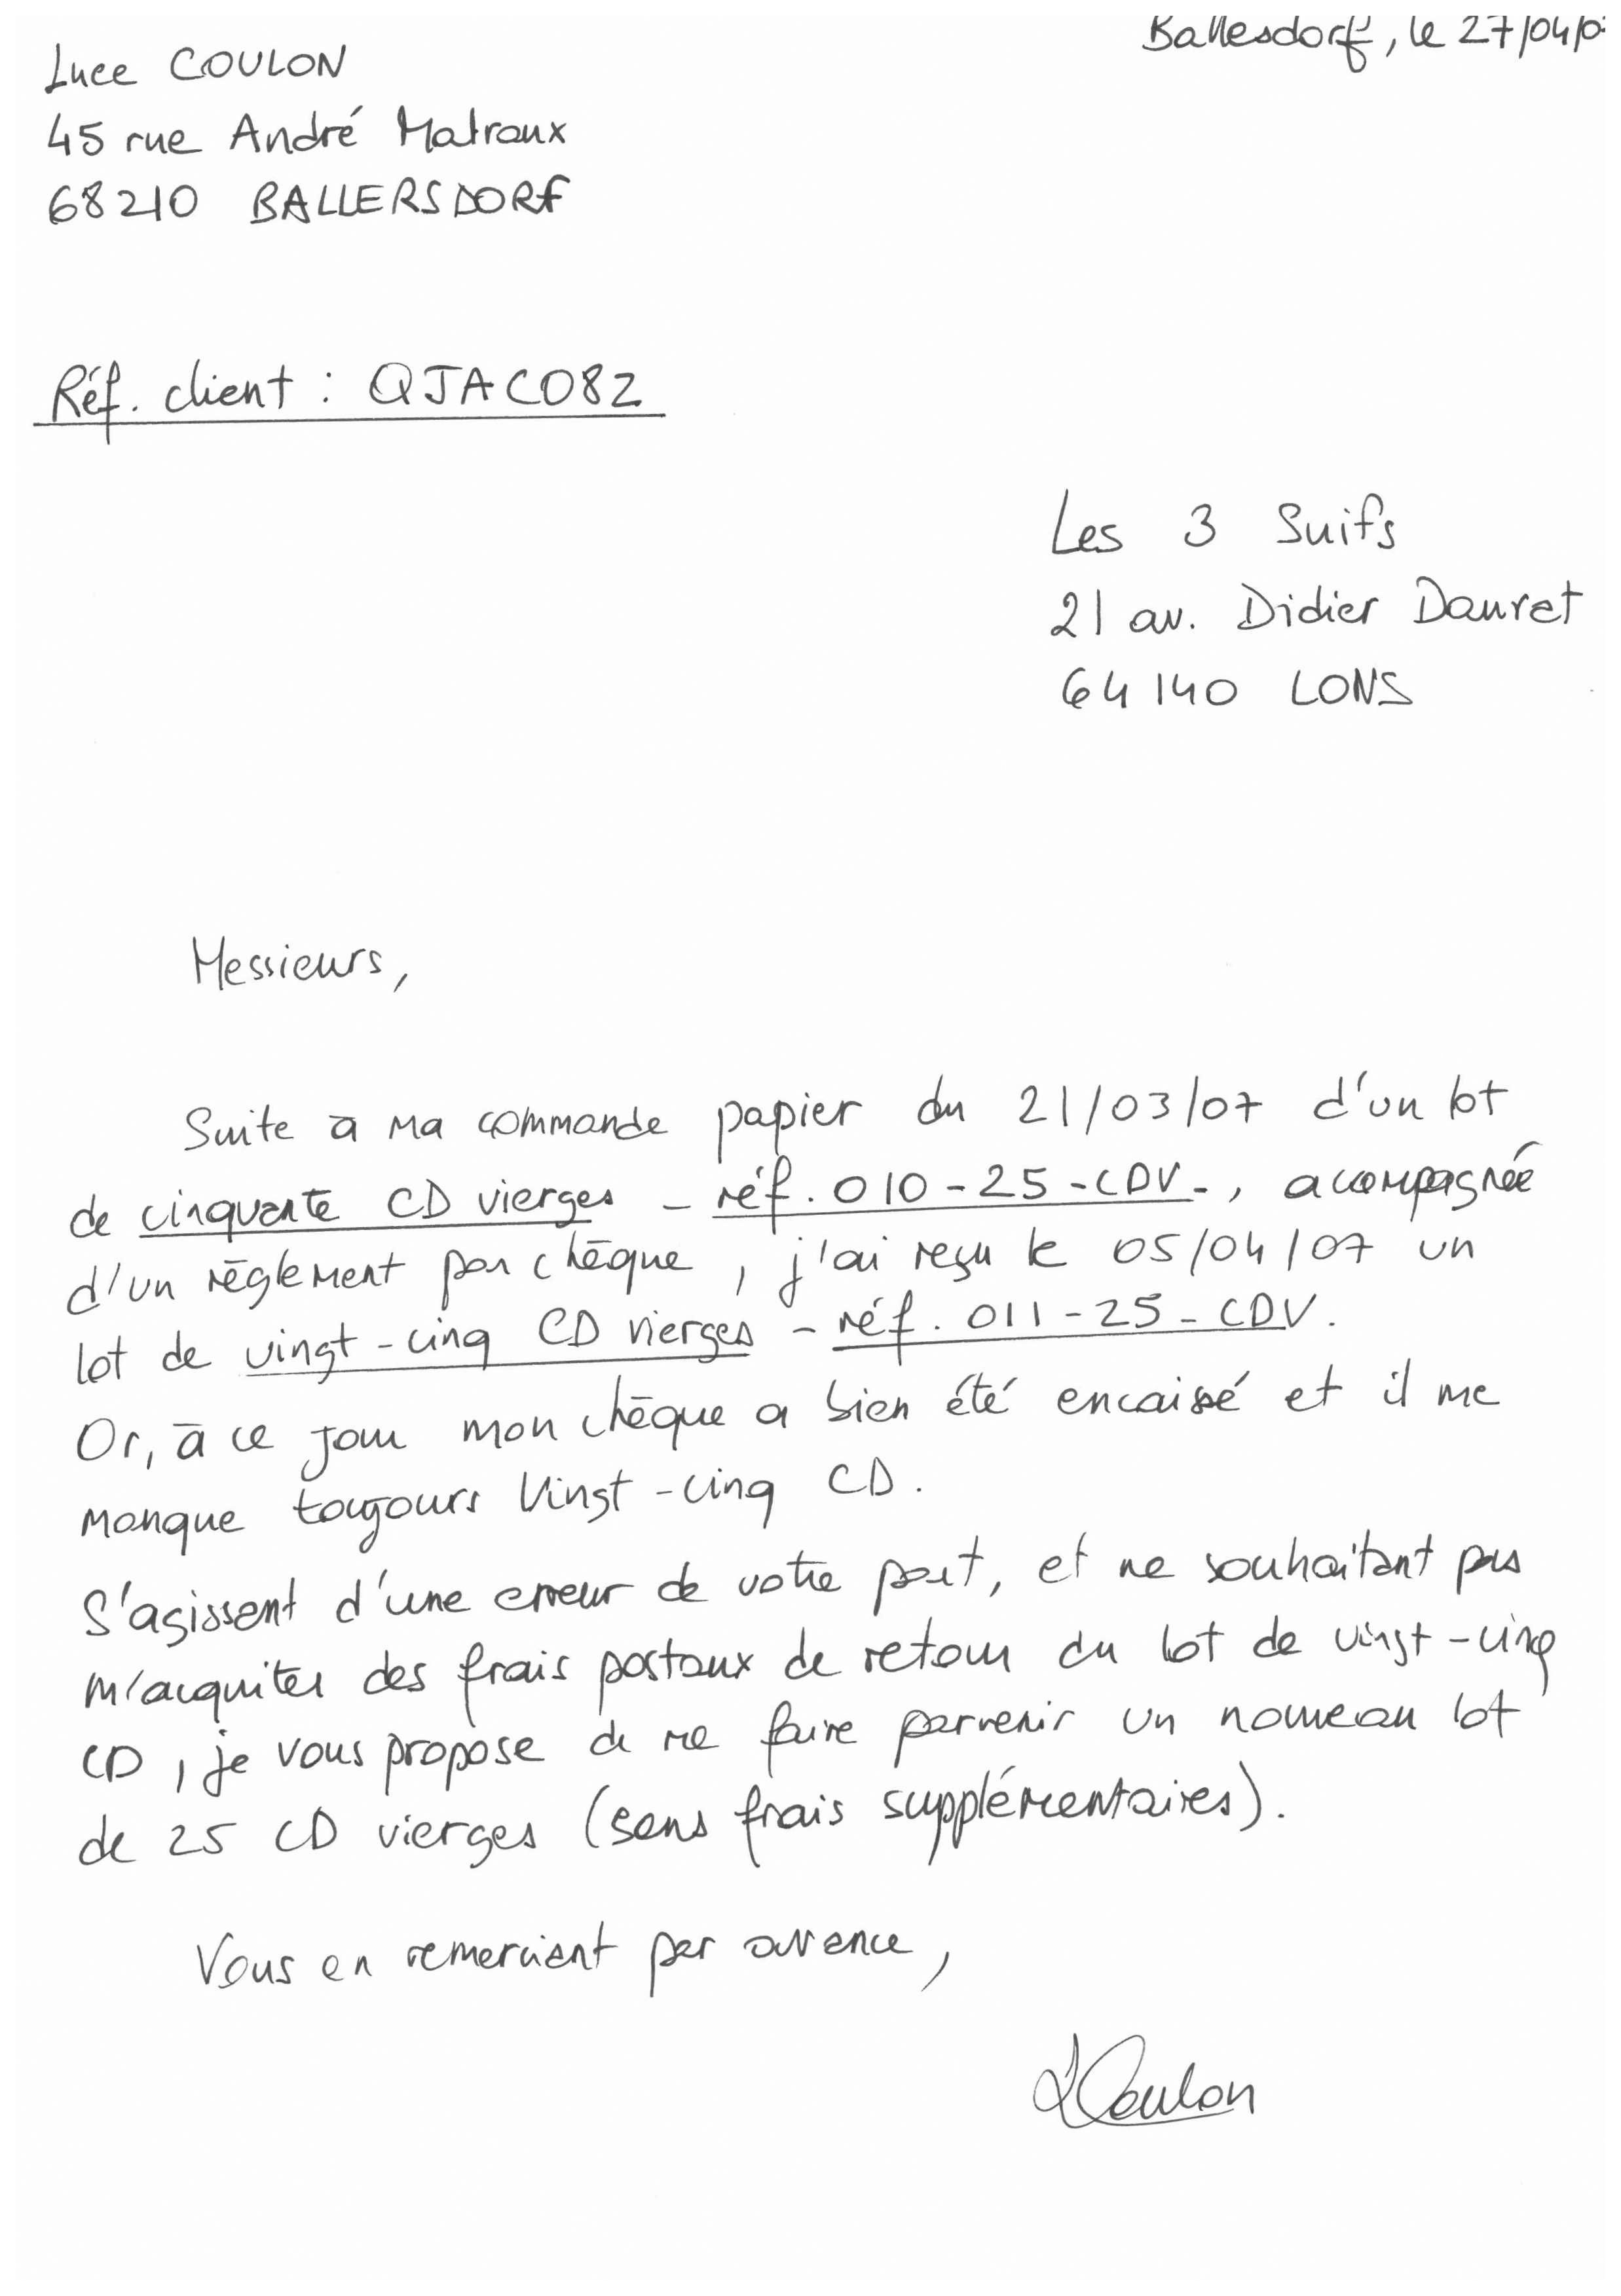 Ballesdorf, le 27/04/0
Luce COULON
45 rue André Malraux
68210 BALLERSDORF
Réf. client : QJACO82
Les 3 Suifs
21 av. Didier Dauret
64140 LONS
Messieurs,
Suite à ma commande papier du 21/03/07 d'un lot
de cinquante CD vierges - réf. 010-25-CDV-, acompagnée
d'un règlement par chèque, j'ai reçu le 05/04/07 un
lot de vingt-cinq CD vierges - réf. 011-25-CDV.
Or, à ce jour mon chèque a bien été encaissé et il me
manque toujours vingt-cinq CD.
S'agissant d'une erreur de votre part, et ne souhaitant pas
m'acquiter des frais postaux de retour du lot de vingt-cinq
CD, je vous propose de me faire parvenir un nouveau lot
de 25 CD vierges (sans frais supplémentaires).
Vous en remerciant par avance,
LCoulon